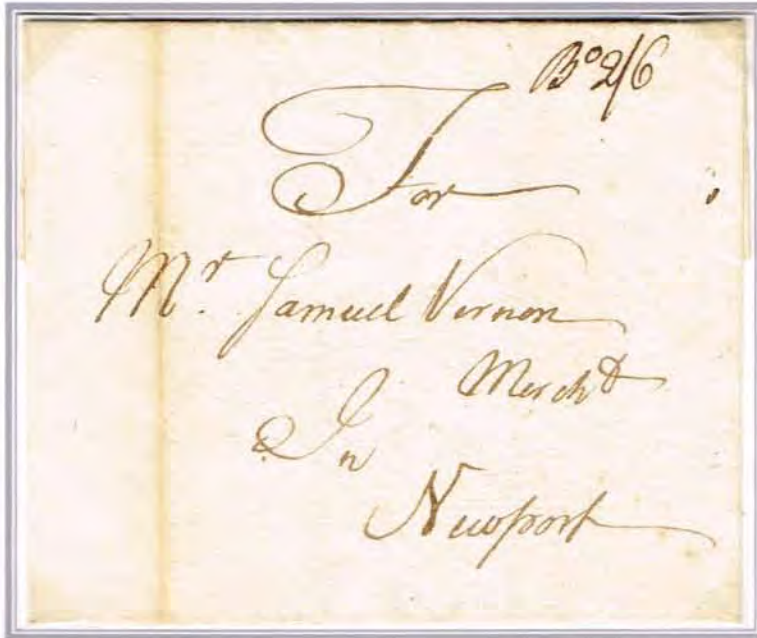 Bo 2/6
For
Mr. Samuel Vernon
Mercht
In
Newport